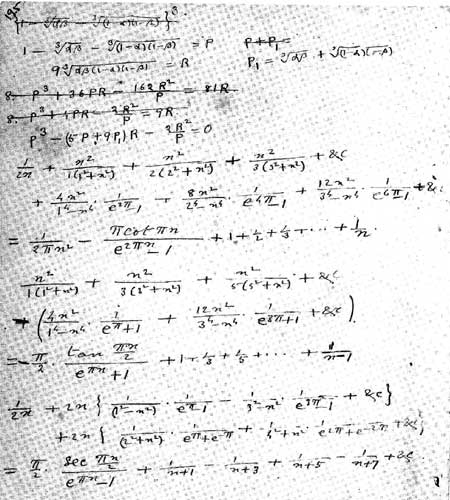 {1 - ∛(αβ) - ∛((1-α)(1-β))}³
1 - ∛(αβ) - ∛((1-α)(1-β)) = P    P + P₁ =
9 ∛(αβ(1-α)(1-β)) = R    P₁ = ∛(αβ) + ∛((1-α)(1-β))
8. P³ + 36PR - 162R²/P = 81R
8. P³ + 4PR - 2R²/P = 9R
P³ - (5P + 9P₁)R - 2R²/P = 0
1/2n + n²/1(1²+n²) + n²/2(2²+n²) + n²/3(3²+n²) + &c
+ 4n²/(1⁴-n⁴) · 1/(e^{2π}-1) + 8n²/(2⁴-n⁴) · 1/(e^{4π}-1) + 12n²/(3⁴-n⁴) · 1/(e^{6π}-1) + &c
= 1/2πn² - π cot πn/(e^{2πn}-1) + 1 + 1/2 + 1/3 + ... + 1/n.
n²/1(1²+n²) + n²/3(3²+n²) + n²/5(5²+n²) + &c
- (4n²/(1⁴-n⁴) · 1/(e^{π}+1) + 12n²/(3⁴-n⁴) · 1/(e^{3π}+1) + &c).
= -π/2 · tan(πn/2)/(e^{πn}+1) + 1 + 1/3 + 1/5 + ... + 1/(n-1)
1/2n + 2n {1/(1²-n²) · 1/(e^{π}-1) - 1/(3²-n²) · 1/(e^{3π}-1) + &c}
+ 2n {1/(2²+n²) · 1/(e^{π}+e^{-π}) + 1/(4²+n²) · 1/(e^{2π}+e^{-2π}) + &c}
= π/2 · sec(πn/2)/(e^{πn}-1) + 1/(n+1) - 1/(n+3) + 1/(n+5) - 1/(n+7) + &c.